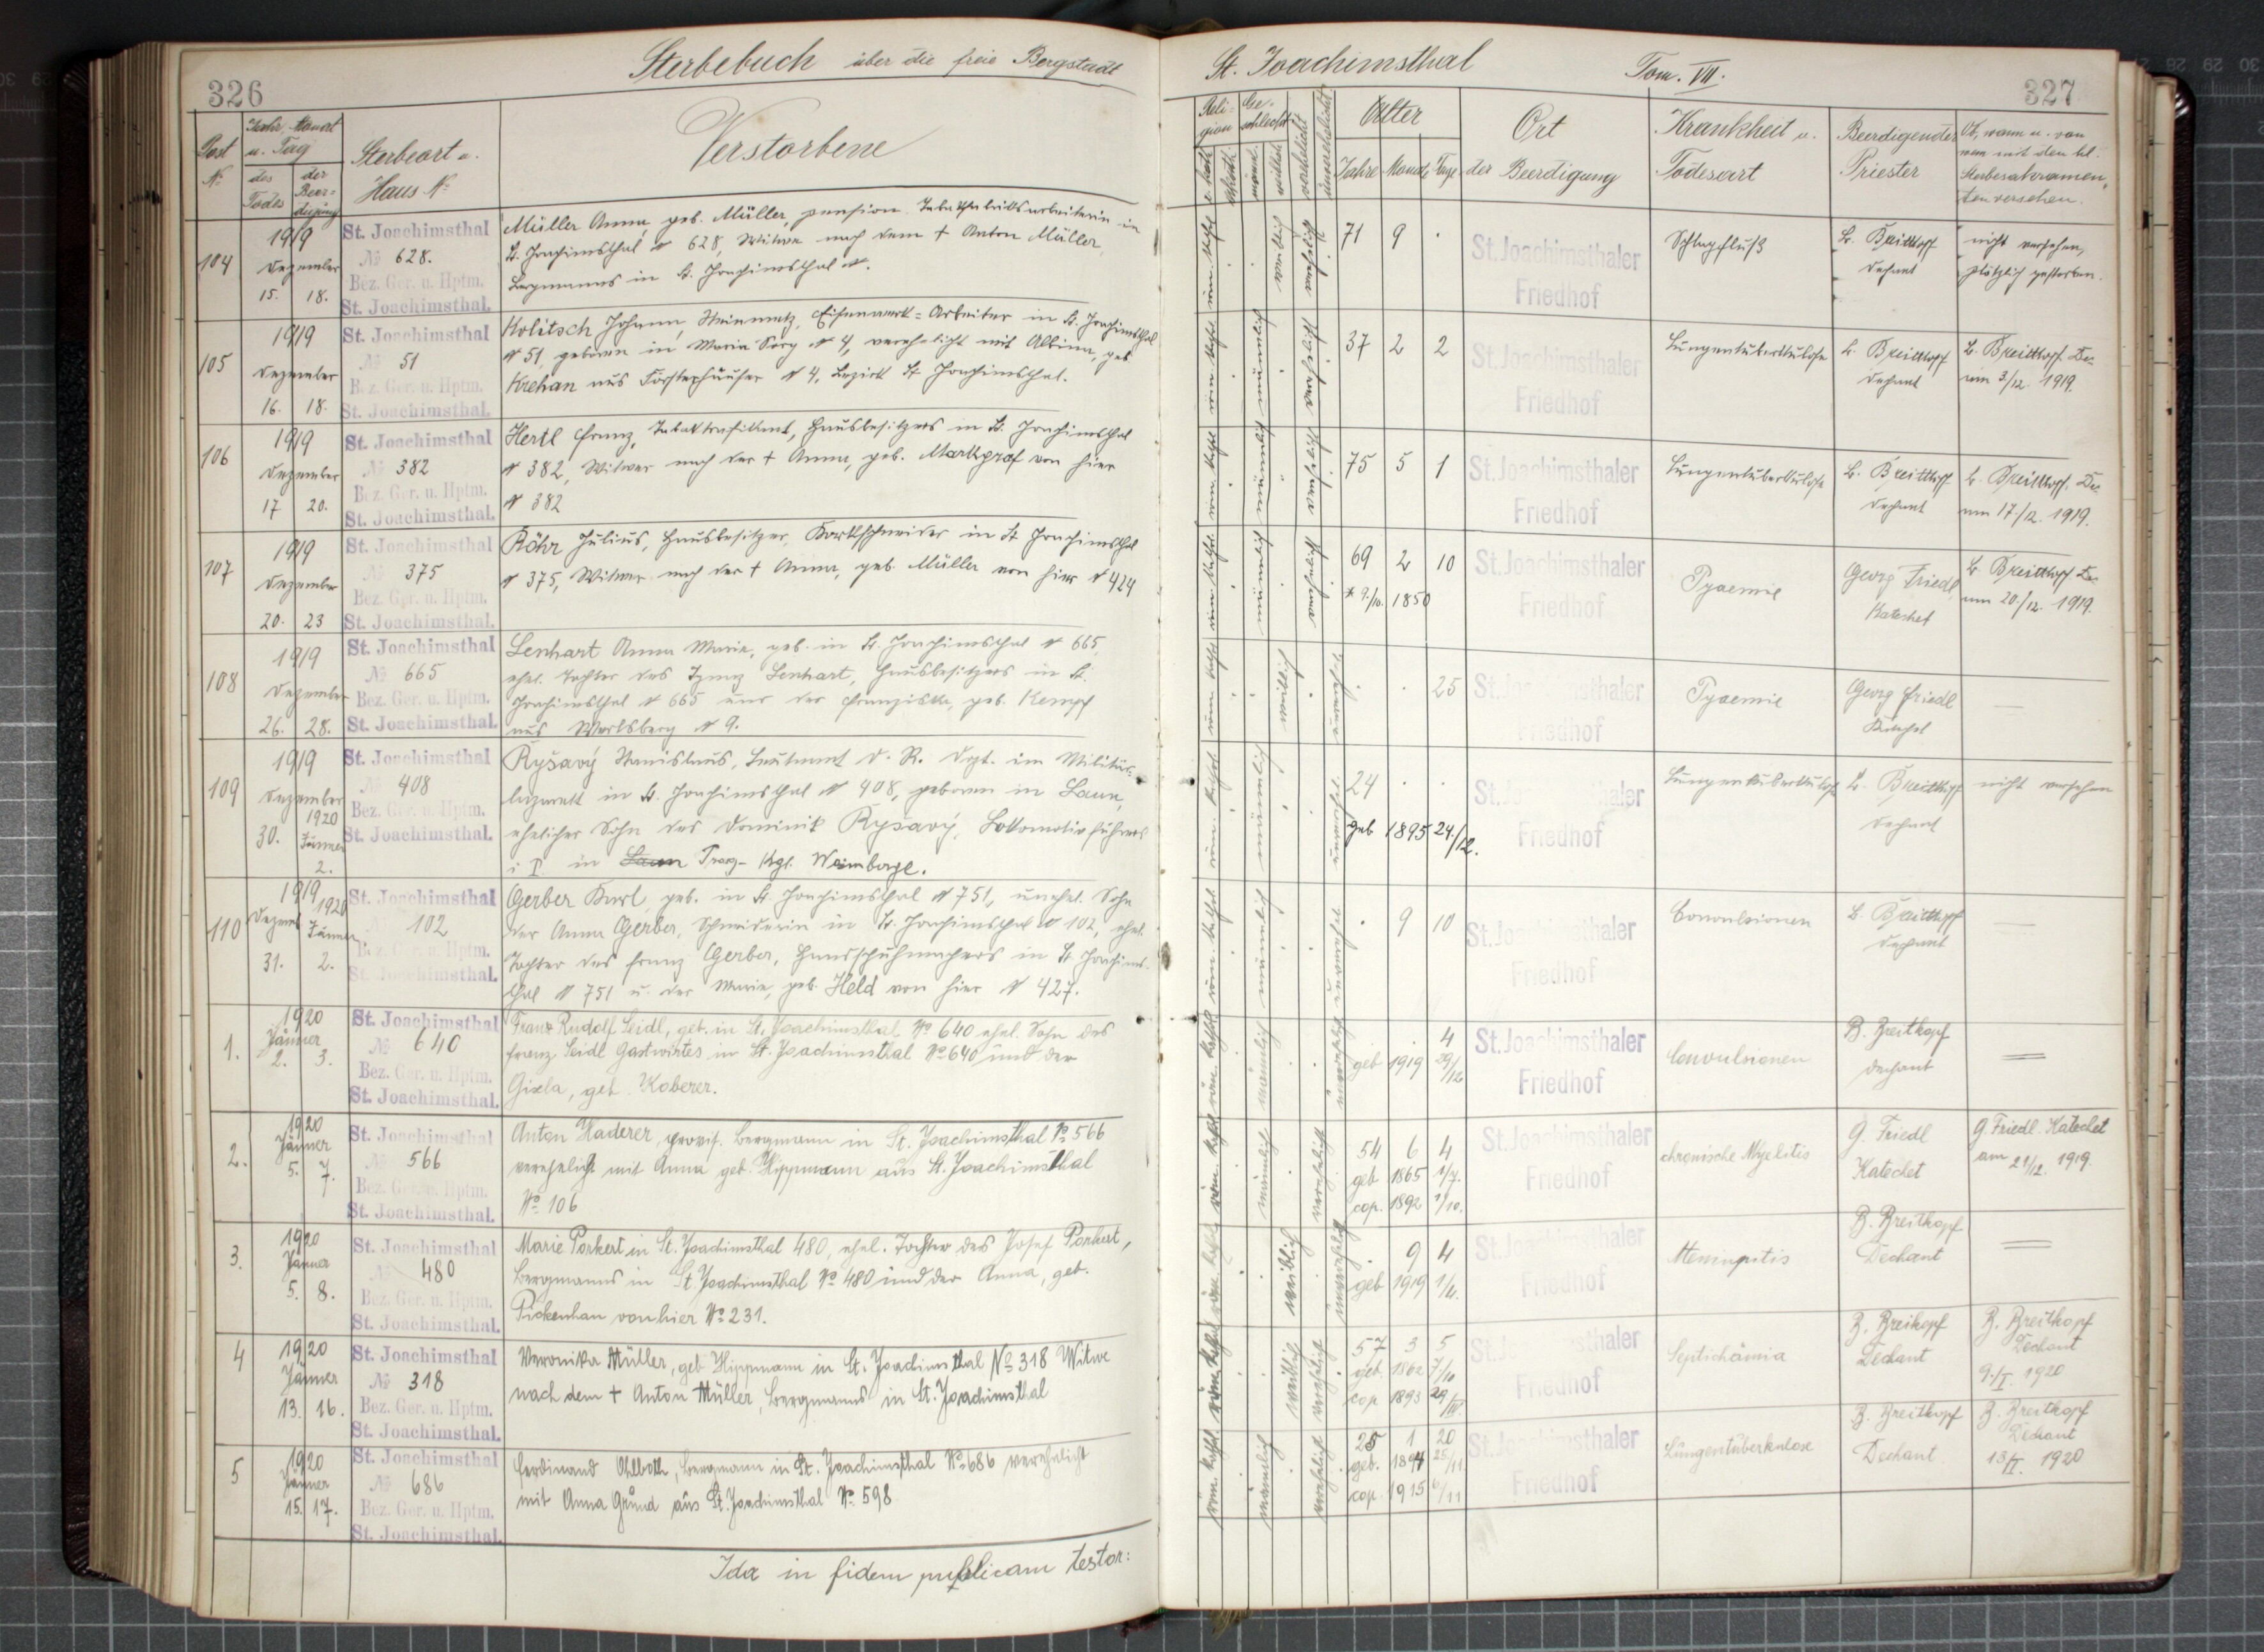 326
Sterbebuch über die freie Bergstadt
Post
№
Jahr, Monat
u. Tag
des
Todes
der
Beer=
digung
Sterbeort u.
Haus №
Verstorbene
104
1919
Dezember
15. 18.
St. Joachimsthal
№ 628.
Bez. Ger. u. Hptm.
St. Joachimsthal.
Müller Anna, geb. Müller, pension. Tabakfabriksarbeiterin in
St. Joachimsthal № 628, Witwe nach dem † Anton Müller,
Bergmanns in St. Joachimsthal №.
105
1919
Dezember
16. 18.
St. Joachimsthal
№ 51
Bez. Ger. u. Hptm.
St. Joachimsthal.
Kolitsch Johann, Steinmetz, Eisenwerk=Arbeiter in St. Joachimsthal
№ 51, geboren in Maria Sorg № 4, verehelicht mit Albina, geb
Krehan aus Försterhäuser № 4, Bezirk St. Joachimsthal.
106
1919
Dezember
17 20.
St. Joachimsthal
№ 382
Bez. Ger. u. Hptm.
St. Joachimsthal.
Hertl Franz, Tabaktrafikant, Hausbesitzers in St. Joachimsthal
№ 382, Witwer nach der † Anna, geb. Markgraf von hier
№ 382
107
1919
Dezember
20. 23
St. Joachimsthal
№ 375
Bez. Ger. u. Hptm.
St. Joachimsthal.
Röhr Julius, Hausbesitzer, Korkschneider in St. Joachimsthal
№ 375, Witwer nach der † Anna, geb. Müller von hier № 424
108
1919
Dezember
26. 28.
St. Joachimsthal
№ 665
Bez. Ger. u. Hptm.
St. Joachimsthal.
Lenhart Anna Maria, geb. in St. Joachimsthal № 665,
ehel. Tochter des Ignaz Lenhart, Hausbesitzers in St.
Joachimsthal № 665 und der Franziska, geb. Kempf
aus Werlsberg № 9.
109
1919
Dezember
1920
30. Jänner
2.
St. Joachimsthal
№ 408
Bez. Ger. u. Hptm.
St. Joachimsthal.
Ryšavý Stanislaus, Leutnant d. R. dzt. im Militär-
lazarett in St. Joachimsthal № 408, geboren in Laun,
ehelicher Sohn des Dominik Ryšavý, Lokomotivführers
i P. in Laun Prag- Kgl. Weinberge.
110
1919
1920
Dezemb Jänner
31. 2.
St. Joachimsthal
102
Bez. Ger. u. Hptm.
St. Joachimsthal.
Gerber Karl, geb. in St. Joachimsthal № 751, unehel. Sohn
der Anna Gerber, Schneiderin in St. Joachimsthal № 102, ehel.
Tochter des Franz Gerber, Handschuhmachers in St. Joachims-
thal № 751 u. der Marie, geb. Held von hier № 427.
1.
1920
Jänner
2. 3.
St. Joachimsthal
№ 640
Bez. Ger. u. Hptm.
St. Joachimsthal.
Franz Rudolf Seidl, geb. in St. Joachimsthal № 640 ehel. Sohn des
Franz Seidl Gastwirtes in St. Joachimsthal № 640 und der
Gisela, geb. Koberer.
2.
1920
Jänner
5. 7.
St. Joachimsthal
№ 566
Bez. Ger. u. Hptm.
St. Joachimsthal.
Anton Haderer, provis. Bergmann in St. Joachimsthal № 566
verehelicht mit Anna geb. Hippmann aus St. Joachimsthal
№ 106
3.
1920
Jänner
5. 8.
St. Joachimsthal
№ 480
Bez. Ger. u. Hptm.
St. Joachimsthal.
Marie Porkert in St. Joachimsthal 480, ehel. Tochter des Josef Porkert,
Bergmanns in St. Joachimsthal № 480 und der Anna, geb.
Pickenhan von hier № 231.
4
1920
Jänner
13. 16.
St. Joachimsthal
№ 318
Bez. Ger. u. Hptm.
St. Joachimsthal.
Veronika Müller, geb Hippmann in St. Joachimsthal № 318 Witwe
nach dem † Anton Müller, Bergmanns in St. Joachimsthal
5
1920
Jänner
15. 17.
St. Joachimsthal
№ 686
Bez. Ger. u. Hptm.
St. Joachimsthal.
Ferdinand Ohlboth, Bergmann in St. Joachimsthal № 686 verehelicht
mit Anna Grund aus St. Joachimsthal № 598
Ida in fidem publicam testor:
St. Joachimsthal Tom. VII.
327
Reli-
gion
Ge-
schlecht
männl.
weibl.
verehelicht
unverehelicht
Alter
Jahre Monate Tage
Ort
der Beerdigung
Krankheit u.
Todesart
Beerdigender
Priester
Ob, wann u. von
wem mit den hl.
Sterbesakramen,
ten versehen.
weiblich
71 9 .
St. Joachimsthaler
Friedhof
Schlagfluß
B. Breitkopf
Dechant
nicht versehen,
plötzlich gestorben.
männlich
verehelicht
37 2 2
St. Joachimsthaler
Friedhof
Lungentuberkulose
B. Breitkopf
Dechant
B. Breitkopf De.
am 3/12. 1919.
männlich
verehelicht
75 5 1
St. Joachimsthaler
Friedhof
Lungentuberkulose
B. Breitkopf
Dechant
B. Breitkopf. De.
am 17/12. 1919.
männlich
verehelicht
69 2 10
* 9./10. 1850
St. Joachimsthaler
Friedhof
Pyaemie
Georg Friedl
Katechet
B. Breitkopf De.
am 20./12. 1919.
weiblich
. . 25
St. Joachimsthaler
Friedhof
Pyaemie
Georg Friedl
männlich
24 . .
geb 1895 24./12.
St. Joachimsthaler
Friedhof
Lungentuberkulose
B. Breitkopf
Dechant
nicht versehen
männlich
. 9 10
St. Joachimsthaler
Friedhof
Convulsionen
B. Breitkopf
Dechant
männlich
. . 4
geb 1919 29/12
St. Joachimsthaler
Friedhof
Convulsionen
B. Breitkopf
Dechant
männlich
verehelicht
54 6 4
geb 1865 1/7.
cop. 1892 1/10.
St. Joachimsthaler
Friedhof
chronische Myelitis
G. Friedl
Katechet
G. Friedl. Katechet
am 21/12. 1919.
weiblich
. 9 4
geb 1919 1/4.
St. Joachimsthaler
Friedhof
Meningitis
B. Breitkopf
Dechant
weiblich
verehelicht
57 3 5
geb. 1862 7/10
cop 1893 29/IV.
St. Joachimsthaler
Friedhof
Septichämia
B. Breikopf
Dechant
B. Breitkopf
Dechant
9./I. 1920
männlich
verehelicht
25 1 20
geb. 1894 25/11
cop. 1915 6/11
St. Joachimsthaler
Friedhof
Lungentüberkulose
B. Breitkopf
Dechant
B. Breitkopf
Dechant
13/I. 1920